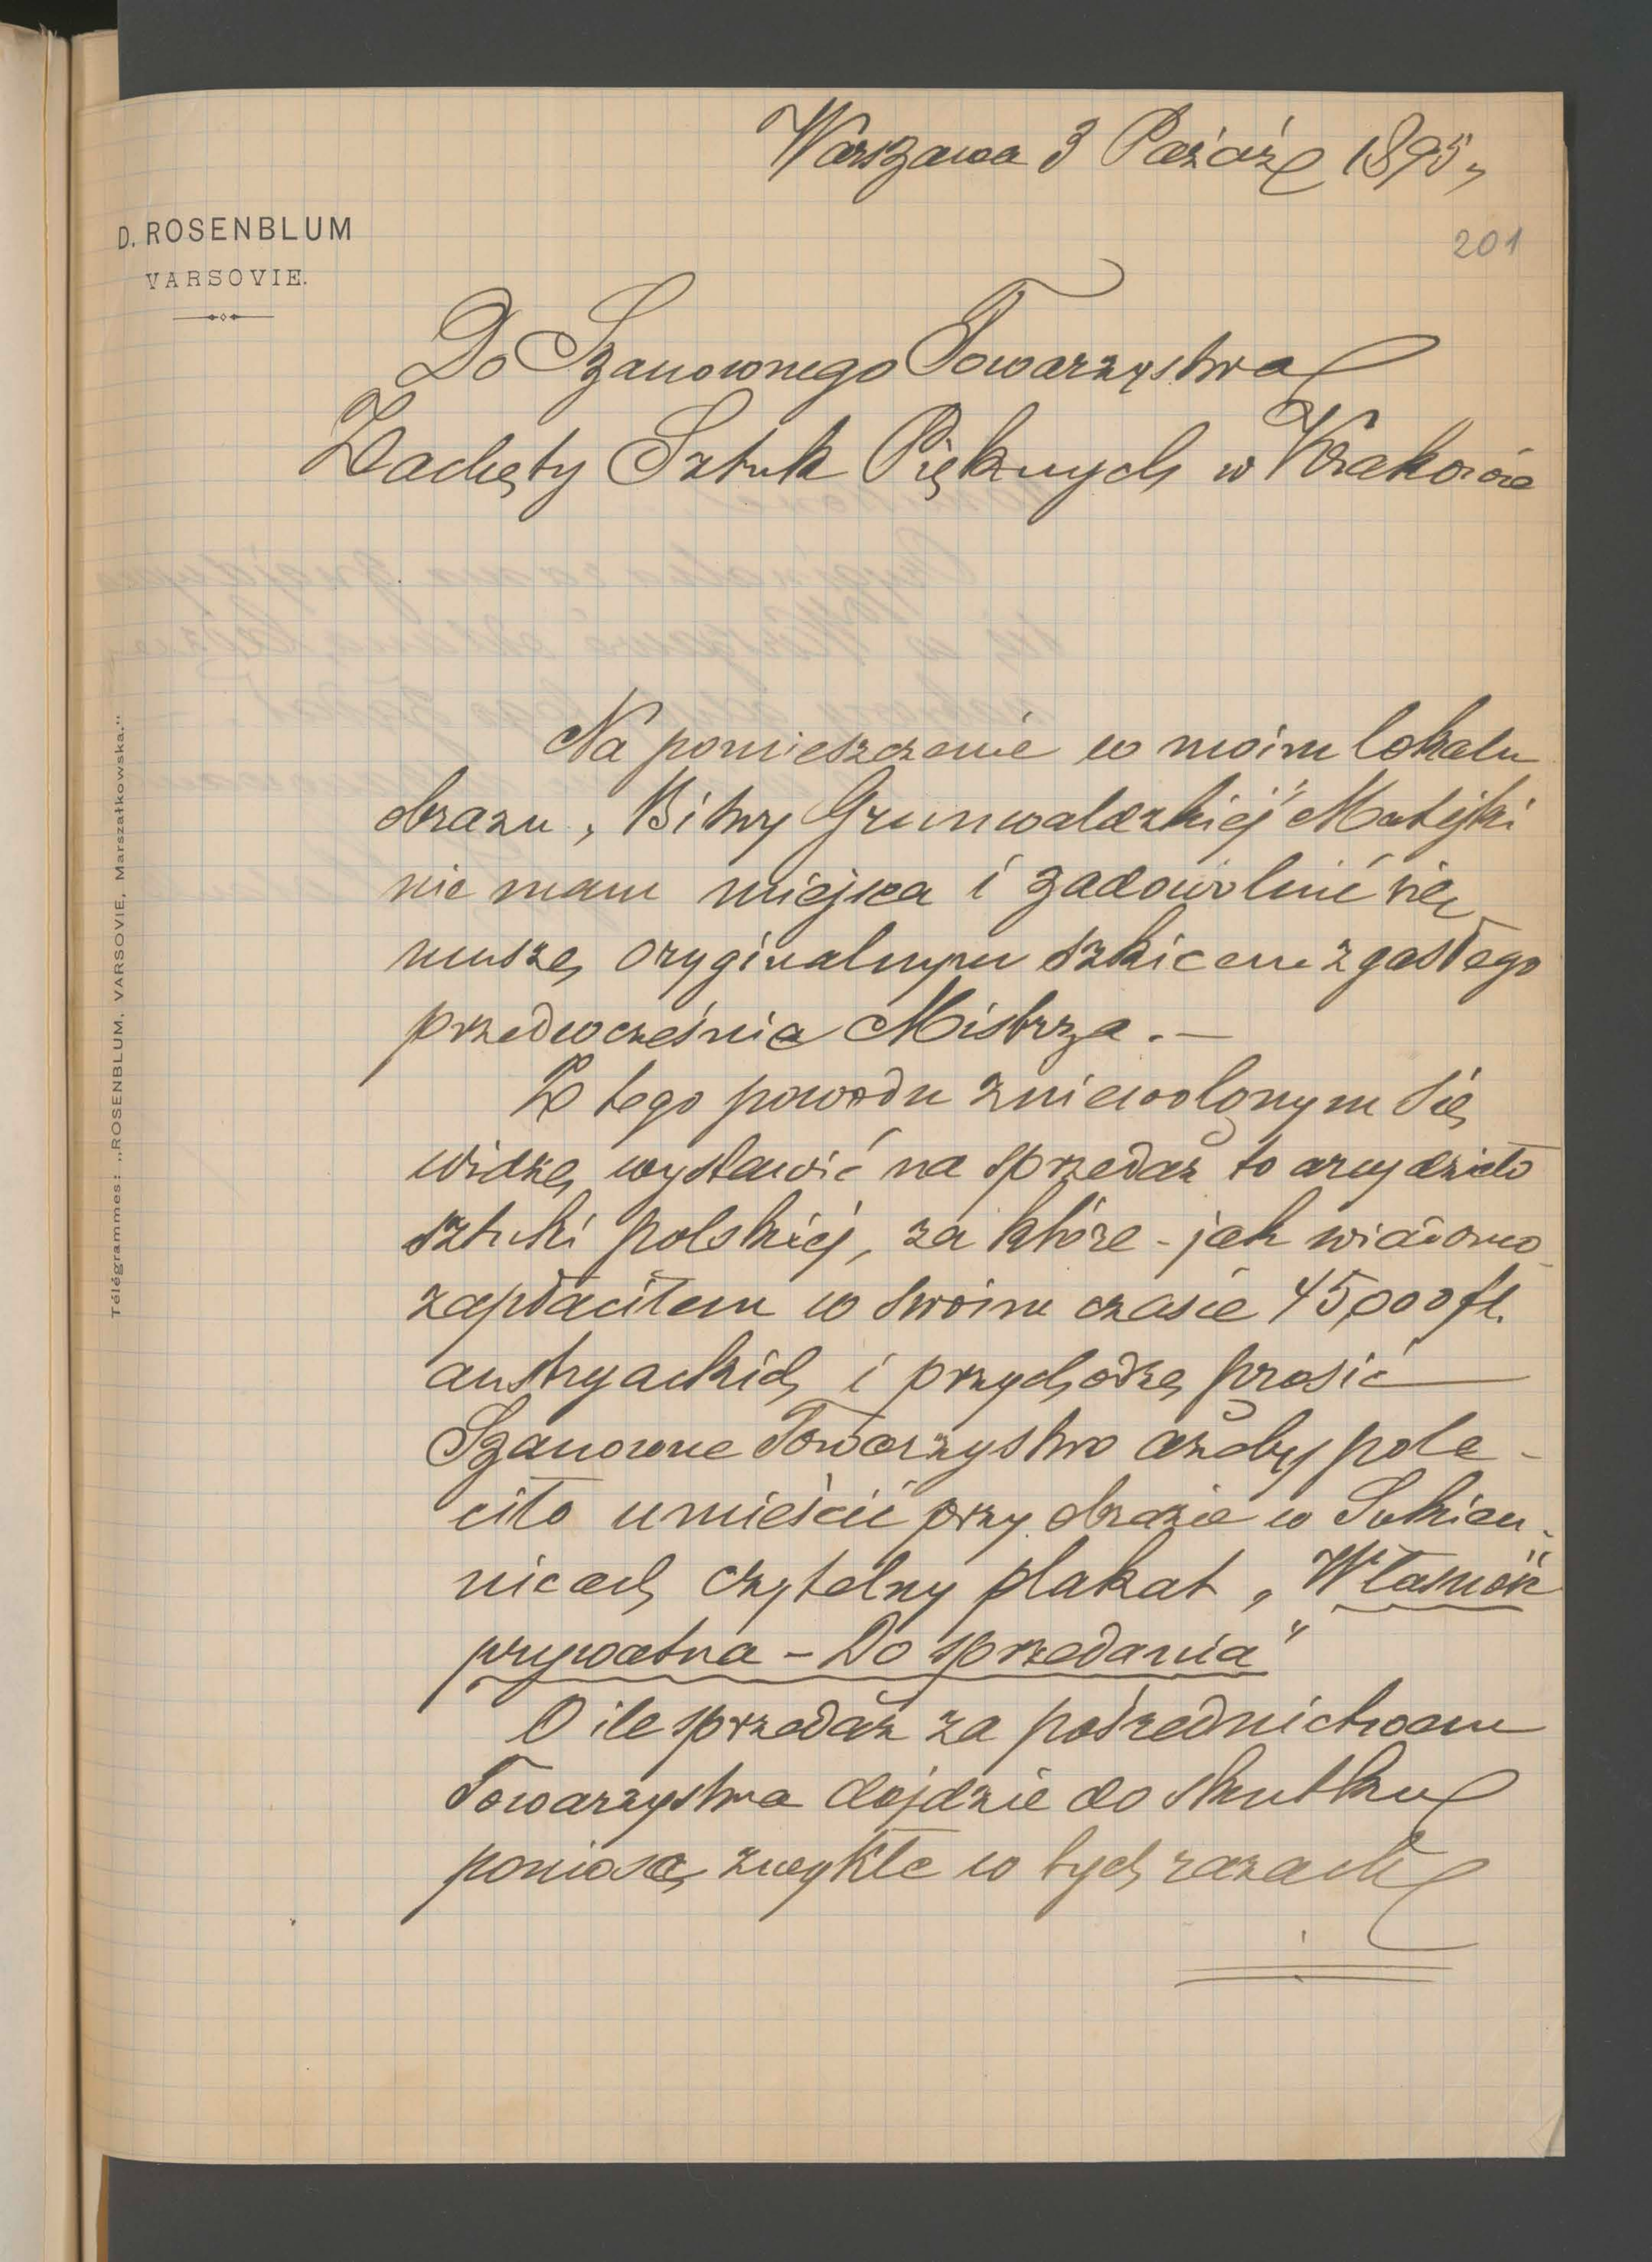 Warszawa 3 Paźdź 1895 r
201
D. ROSENBLUM
VARSOVIE.
Do Szanownego Towarzystwa
Zachęty Sztuk Pięknych w Krakowie
Na pomieszczenie w moim lokalu
obrazu „Bitwy Grunwaldzkiej" Matejki
nie mam miejsca i zadowolnić się
muszę oryginalnym szkicem zgasłego
przedwcześnie Mistrza. —
Z tego powodu zniewolonym się
widzę wystawić na sprzedaż to arcydzieło
sztuki polskiej, za które - jak wiadomo -
zapłaciłem w swoim czasie 45,000 fl.
austryackich i przychodzę prosić
Szanowne Towarzystwo ażeby pole-
ciło umieścić przy obrazie w Sukien-
nicach czytelny plakat „Własność
prywatna – Do sprzedania"
O ile sprzedaż za pośrednictwem
Towarzystwa dojdzie do skutku
poniosę zwykłe w tych razach
Télégrammes: „ROSENBLUM, VARSOVIE, Marszałkowska."